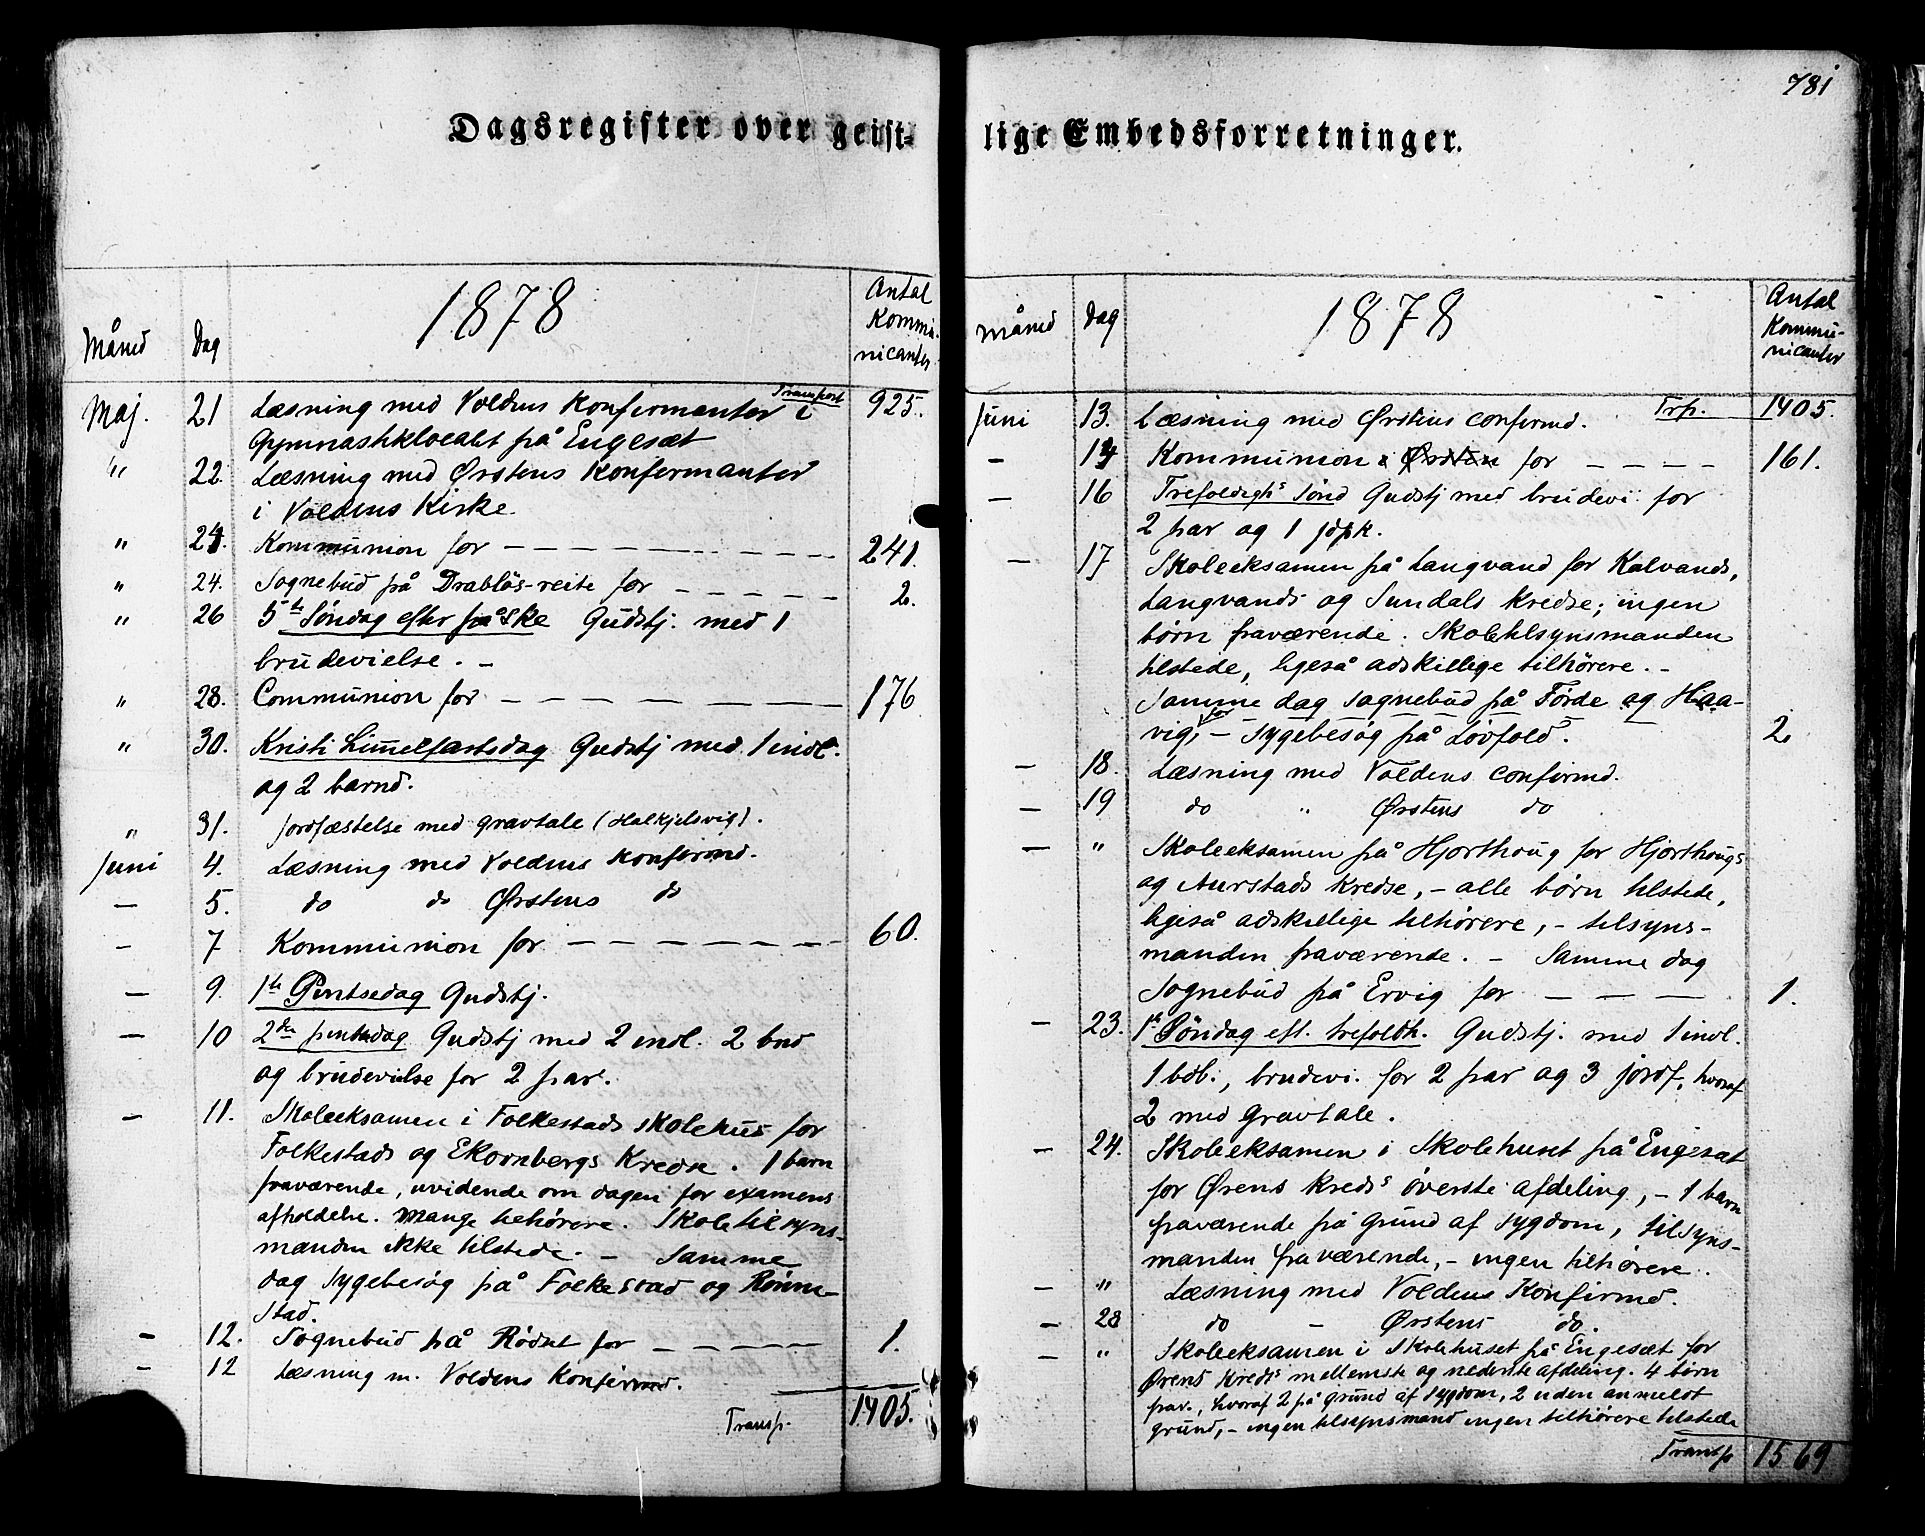 781
Dagsregister over geist-
lige Embedsforretninger.
Måned Dag 1878 Antal Kommu-nicanter
Transport
Maj. 21 Læsning med Voldens Konfirmanter i 925.
Gymnastiklocalet på Engesæt
" 22. Læsning med Ørstens Konfermanter
i Voldens Kirke
" 24. Kommunion for — — — — 241.
" 24. Sognebud på Drabløs-reite for — — — — 2.
" 26 5te Søndag efter påske Gudstj. med 1
brudevielse. –
" 28. Communion for — — — — 176
" 30. Kristi Himmelfartsdag Gudstj med 1 indl.
og 2 barnd.
" 31. Jordfæstelse med gravtale (Halkjelsvig).
Juni 4. Læsning med Voldens Konfirmd.
— 5. do do Ørstens do
— 7 Kommunion for — — — — 60.
— 9. 1te Pintsedag Gudstj.
— 10 2den pintsedag Gudstj med 2 indl. 2 bnd
og brudevielse for 2 par.
— 11. Skoleeksamen i Folkestads skolehus for
Folkestads og Ekornbergs Kredse. 1 barn
fraværende, uvidende om dagen for examens
afholdelse. Mange tilhørere. Skoletilsyns-
manden ikke tilstede. — Samme
dag sygebesøg på Folkestad og Rønne-
stad.
— 12. Sognebud på Rødset for — — — — 1.
— 12 Læsning m. Voldens Konfirmd.
Transp. 1405.
Måned Dag 1878 Antal Kommu-nicanter
Juni 13. Læsning med Ørstens confirmd. Trp. 1405.
— 14 Kommunion i Ørsten for — — — — 161.
— 16 Trefoldighs Sønd Gudstj med brudevi for
2 par og 1 jdpk.
— 17 Skoleeksamen på Langvand for Kalvands,
Langvands og Sundals Kredse; ingen
børn fraværende. Skoletilsynsmanden
tilstede, ligeså adskillige tilhørere. –
Samme dag sognebud på Førde og Haa-
vig, – sygebesøg på Løvfold. 2.
— 18. Læsning med Voldens confirmd.
— 19 do " Ørstens do
— " Skoleeksamen på Hjorthoug for Hjorthougs
og Aurstads Kredse, – alle børn tilstede,
ligeså adskillige tilhørere, – tilsyns-
manden fraværende. – Samme dag
Sognebud på Ervig for — — — 1.
— 23. 1te Søndag eft. trefoldh. Gudstj. med 1 indl.
1 bdb., brudevi. for 2 par og 3 jordf, hvoraf
2 med gravtale.
— 24. Skoleeksamen i Skolehuset på Engesæt
for Ørens Kreds's øverste afdeling, – 1 barn
fraværende på grund af sygdom, tilsyns-
manden fraværende, – ingen tilhørere.
— " Læsning med Voldens Konfirmd.
— 28 do – Ørstens do.
— " Skoleeksamen i Skolehuset på Engesæt for
Ørens Kreds's mellemste og nederste afdeling. 4 børn
frav., hvoraf 2 på grund af sygdom, 2 uden anmeldt
grund, – ingen tilsynsmand ingen tilhørere tilstede
Transp 1569